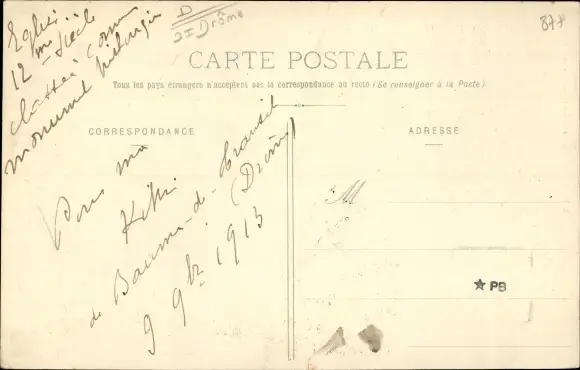 Eglise
12me Siècle
Classée Comme
monument historique
D
Drôme
878
CARTE POSTALE
Tous les pays étrangers n'acceptent pas la correspondance au recto (Se renseigner à la Poste)
CORRESPONDANCE
ADRESSE
Pour ma
Kiki
de Baume-de-Transit
(Drôme)
9 9bre 1913
M
PB